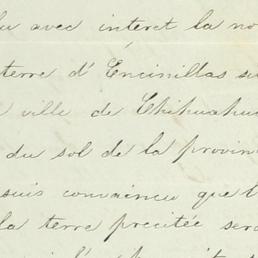 lu avec interet la no
terre d'Encinillas su
ville de Chihuahu
du sol de la provin
suis convaincu que l
la terre precitée ser